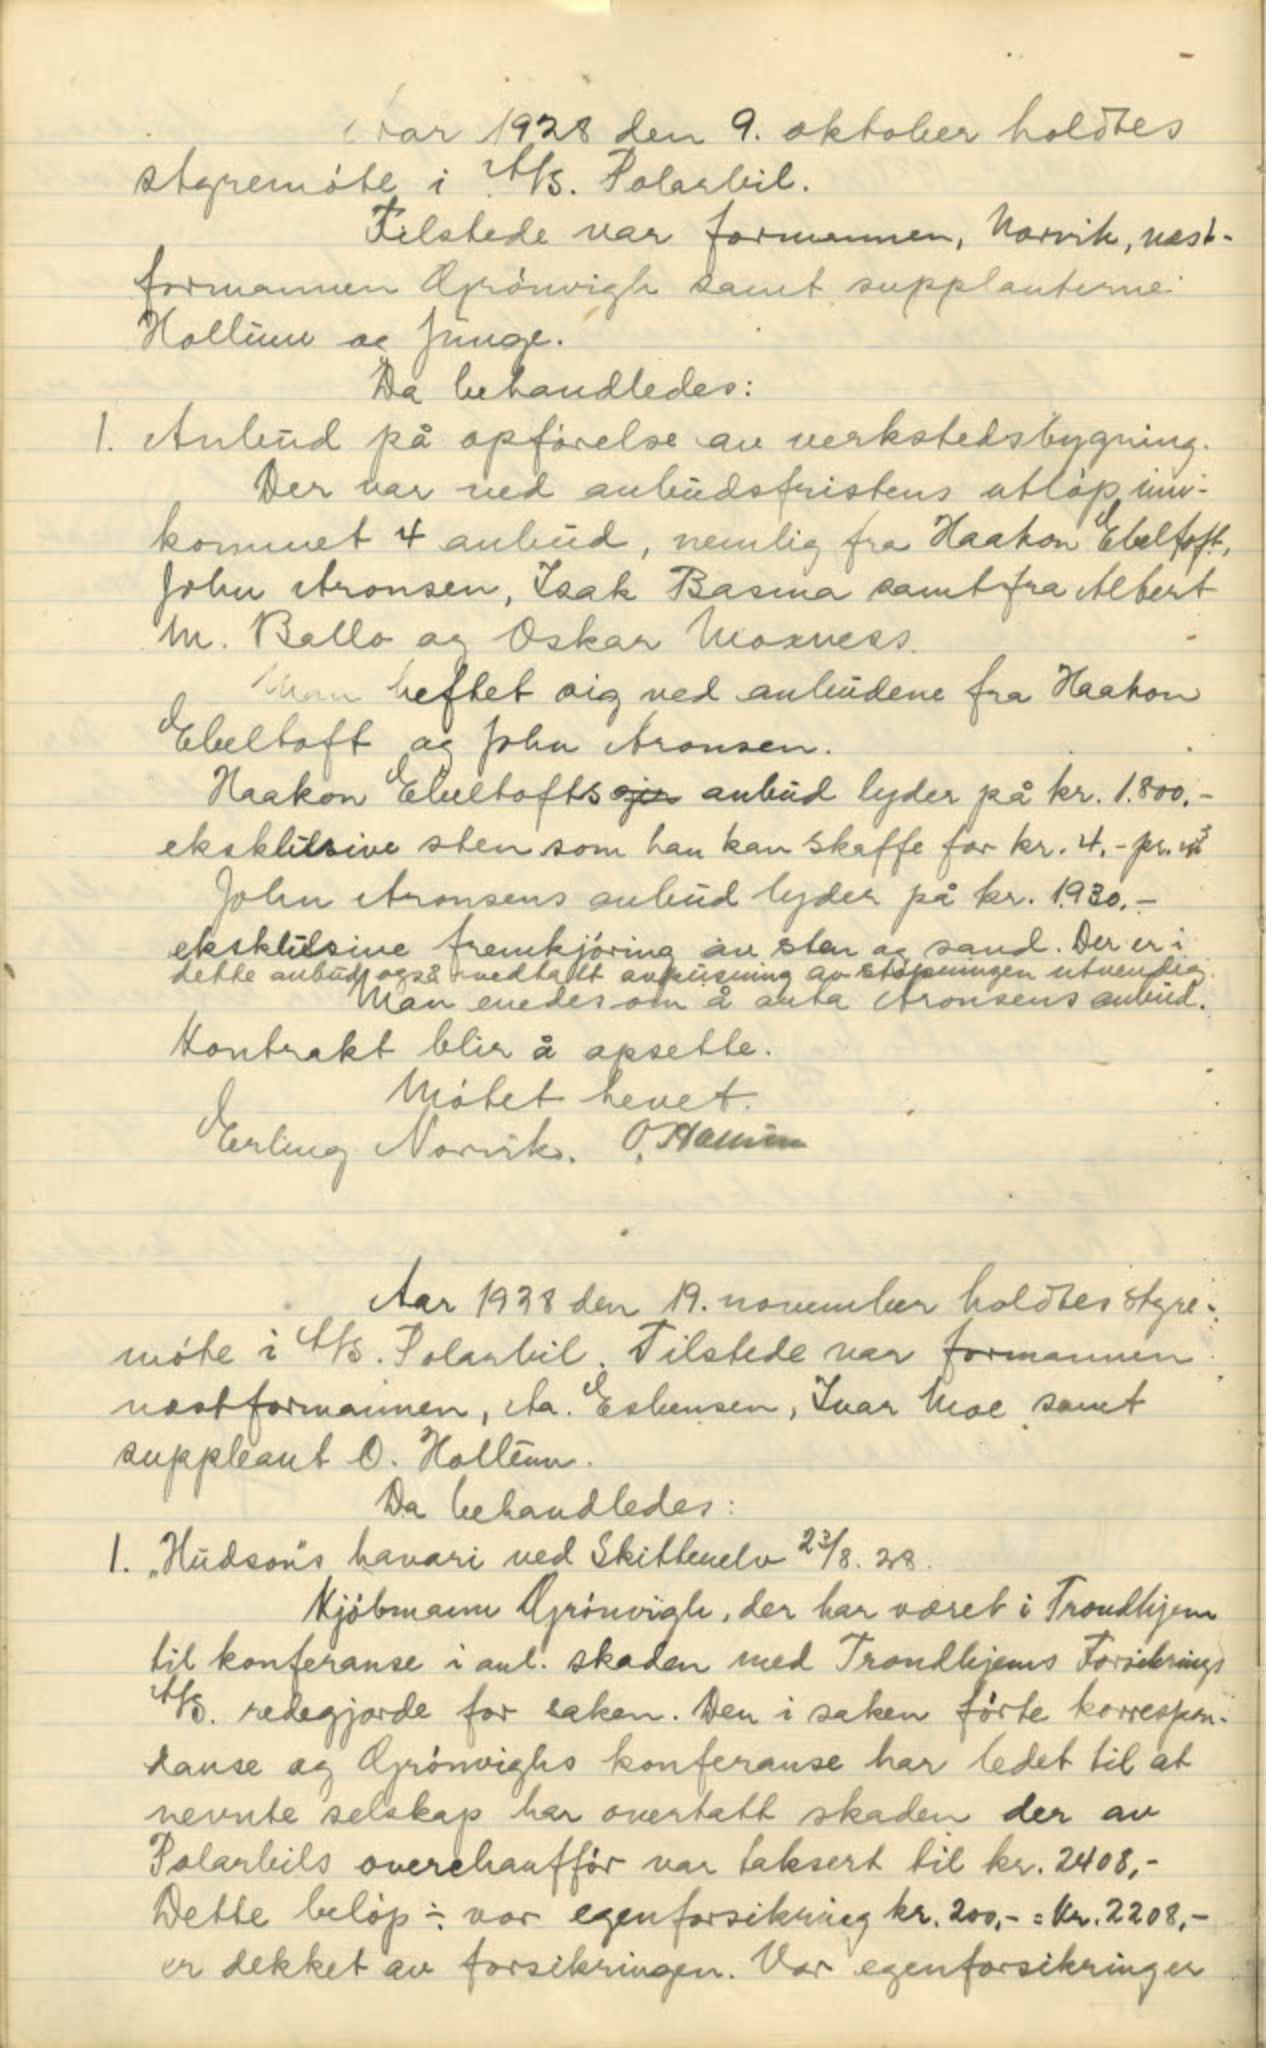 Aar 1928 den 9. oktober holdtes
styremöte i A/S. Polarbil.
Tilstede var formannen, Norvik, næst-
formannen Grönvigh samt supplanterne
Hollum og Junge.
Da behandledes:
1. Anbud på opförelse av verkstedsbygning.
Der var ved anbudsfristens utlöp inn-
kommet 4 anbud, nemlig fra Haakon Ebeltoft,
John Aronsen, Isak Basma samt fra Albert
M. Ballo og Oskar Moxness.
Man heftet sig ved anbudene fra Haakon
Ebeltoft og John Aronsen.
Haakon Ebeltofts anbud lyder på kr. 1.800,-
eksklusive sten som han kan skaffe for kr. 4,- pr. m³
John Aronsens anbud lyder på kr. 1930.-
eksklusive fremkjöring av sten og sand. Der er i
dette anbud også medtatt avpusning av stöpningen utvendig.
Man enedes om å anta Aronsens anbud.
Kontrakt blir å opsette.
Mötet hevet.
Erling Norvik. O. Hollum
Aar 1938 den 19. november holdtes styre-
möte i A/S. Polarbil. Tilstede var formannen
næstformannen, Aa. Esbensen, Ivar Moe samt
suppleant O. Hollum.
Da behandledes:
1. „Hudson"s havari ved Skittenelv 23/8. 28.
Kjöbmann Grönvigh, der har været i Trondhjem
til konferanse i anl. skaden med Trondhjems Forsikrings
A/S. redegjorde for saken. Den i saken förte korrespon-
danse og Grönvighs konferanse har ledet til at
nevnte selskap har overtatt skaden der av
Polarbils overchafför var taksert til kr. 2408,-
Dette belöp ÷ vor egenforsikring kr. 200,- = kr. 2208,-
er dekket av forsikringen. Vor egenforsikring er